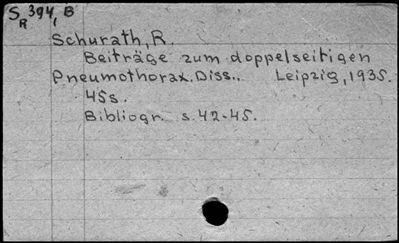 S_R 394, B
Schurath, R.
Beiträge zum doppelseitigen
Pneumothorax. Diss.. Leipzig, 1935.
45s.
Bibliogr. s. 42-45.